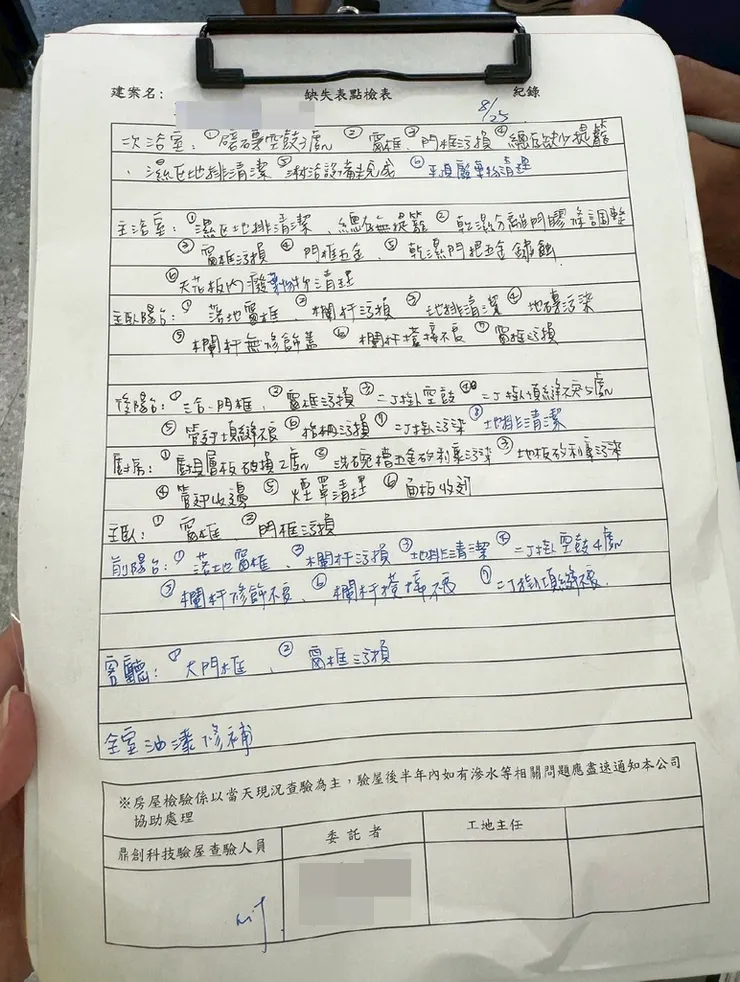 建案名：
缺失表點檢表
8/25
紀錄
次浴室：①磁磚空鼓3處 ②窗框、③門框污損 ④總店缺少提籠
、濕區地排清潔 ⑤淋浴設備未完成 ⑥平頂廢棄物清理
主浴室：①濕區地排清潔、總店無提籠 ②乾濕分離門膠條調整
③窗框污損 ④門框五金、⑤乾濕門把五金鏽蝕
⑥天花板內廢棄物清理
主臥陽台：①落地窗框、②欄杆污損 ③地排清潔 ④地磚污染
⑤欄杆無修飾蓋 ⑥欄杆搭接不良 ⑦窗框污損
後陽台：①三合一門框、②窗框污損 ③二丁掛空鼓 ④二丁掛填縫不實5處
⑤管封填縫不良 ⑥格柵污損 ⑦二丁掛污染 ⑧地排清潔
廚房：①廚具層板破損2處 ②洗碗槽五金矽利康污染 ③地板矽利康污染
④管封收邊 ⑤煙罩清理 ⑥面板收刮
主臥：①窗框、②門框污損
前陽台：①落地窗框、②欄杆污損 ③地排清潔 ④二丁掛空鼓4處
⑤欄杆修飾不良、⑥欄杆搭接不良 ⑦二丁掛填縫不良
客廳：①大門框、②窗框污損
全室油漆修補
※房屋檢驗係以當天現況查驗為主，驗屋後半年內如有滲水等相關問題應盡速通知本公司
協助處理
鼎創科技驗屋查驗人員
委託者
工地主任